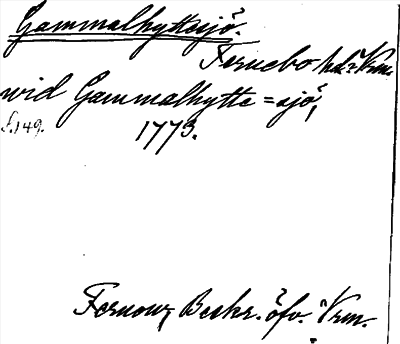 Gammalhyttesjö.
Fernebo hd. Vrm.
wid Gammalhytte=sjö,
s. 149. 1773.
Fernow, Beskr. öfv. Vrm.